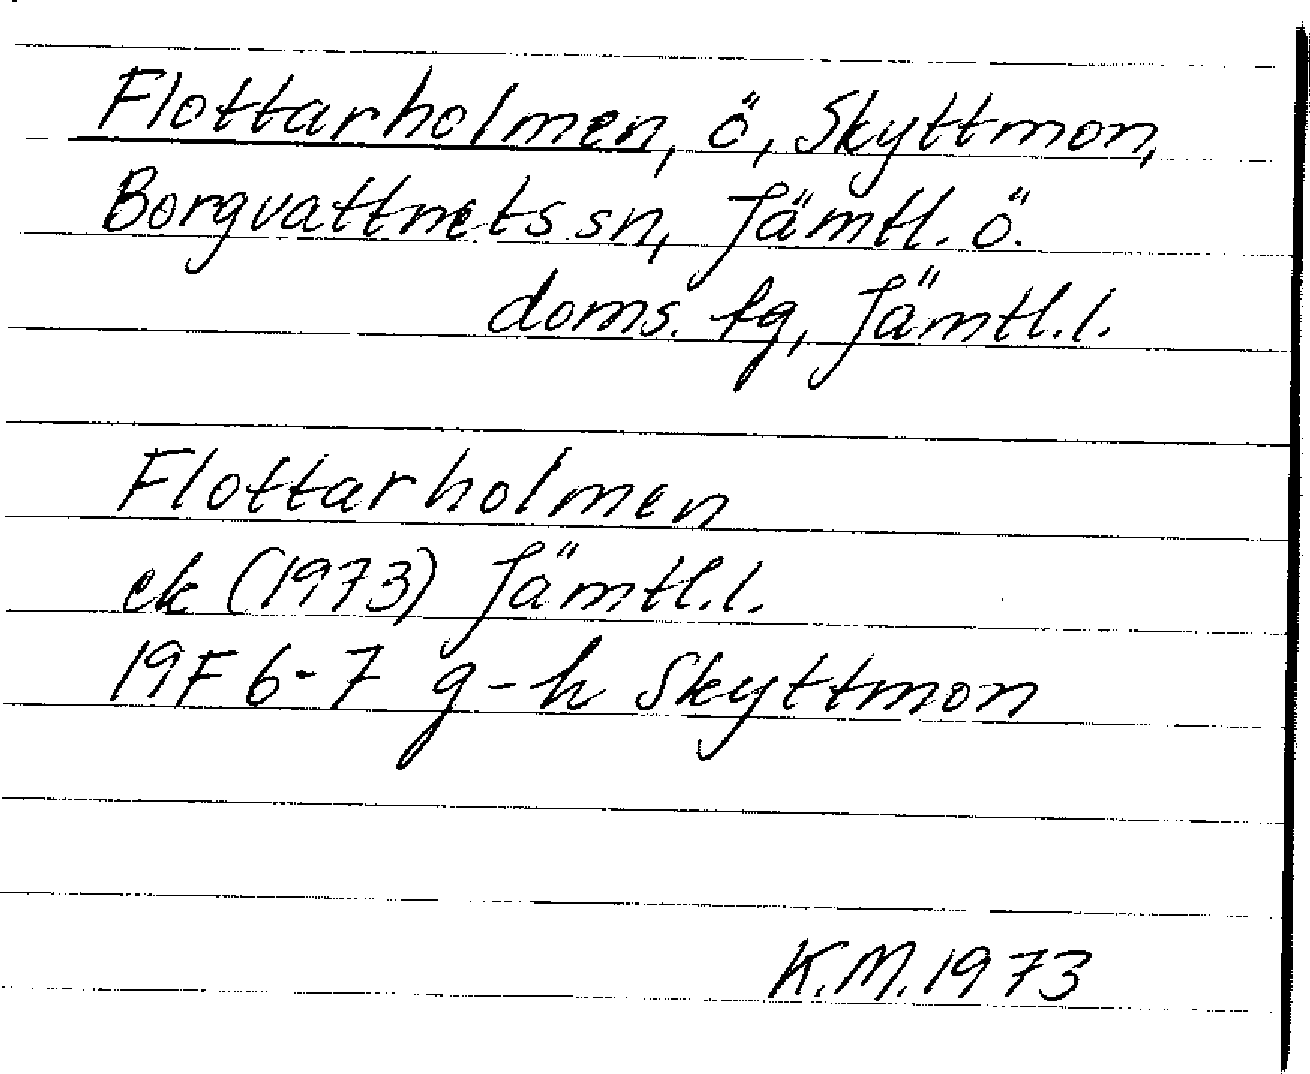 Flottarholmen, ö, Skyttmon,
Borgvattnets sn, Jämtl. ö.
doms. fg, Jämtl.l.
Flottarholmen
ek (1973) Jämtl.l.
19F 6-7 g-h Skyttmon
K.M. 1973